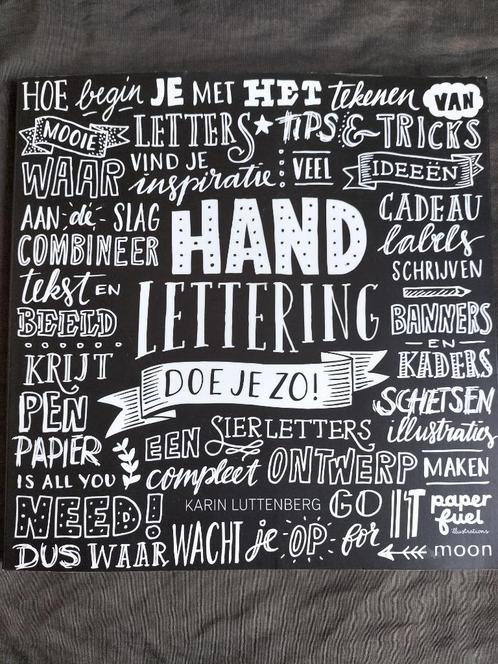 HOE begin JE MET HET tekenen VAN
MOOIE LETTERS ★ TIPS & TRICKS
WAAR VIND JE inspiratie: VEEL IDEEËN
AAN de SLAG
COMBINEER
tekst EN
BEELD
KRIJT
PEN
PAPIER
IS ALL YOU
NEED!
HAND
LETTERING
DOE JE ZO!
CADEAU
labels
SCHRIJVEN
BANNERS
EN
KADERS
SCHETSEN
illustraties
EEN SIERLETTERS
compleet ONTWERP MAKEN
KARIN LUTTENBERG
DUS WAAR WACHT je OP - for
GO IT
paper
fuel
illustrations
moon